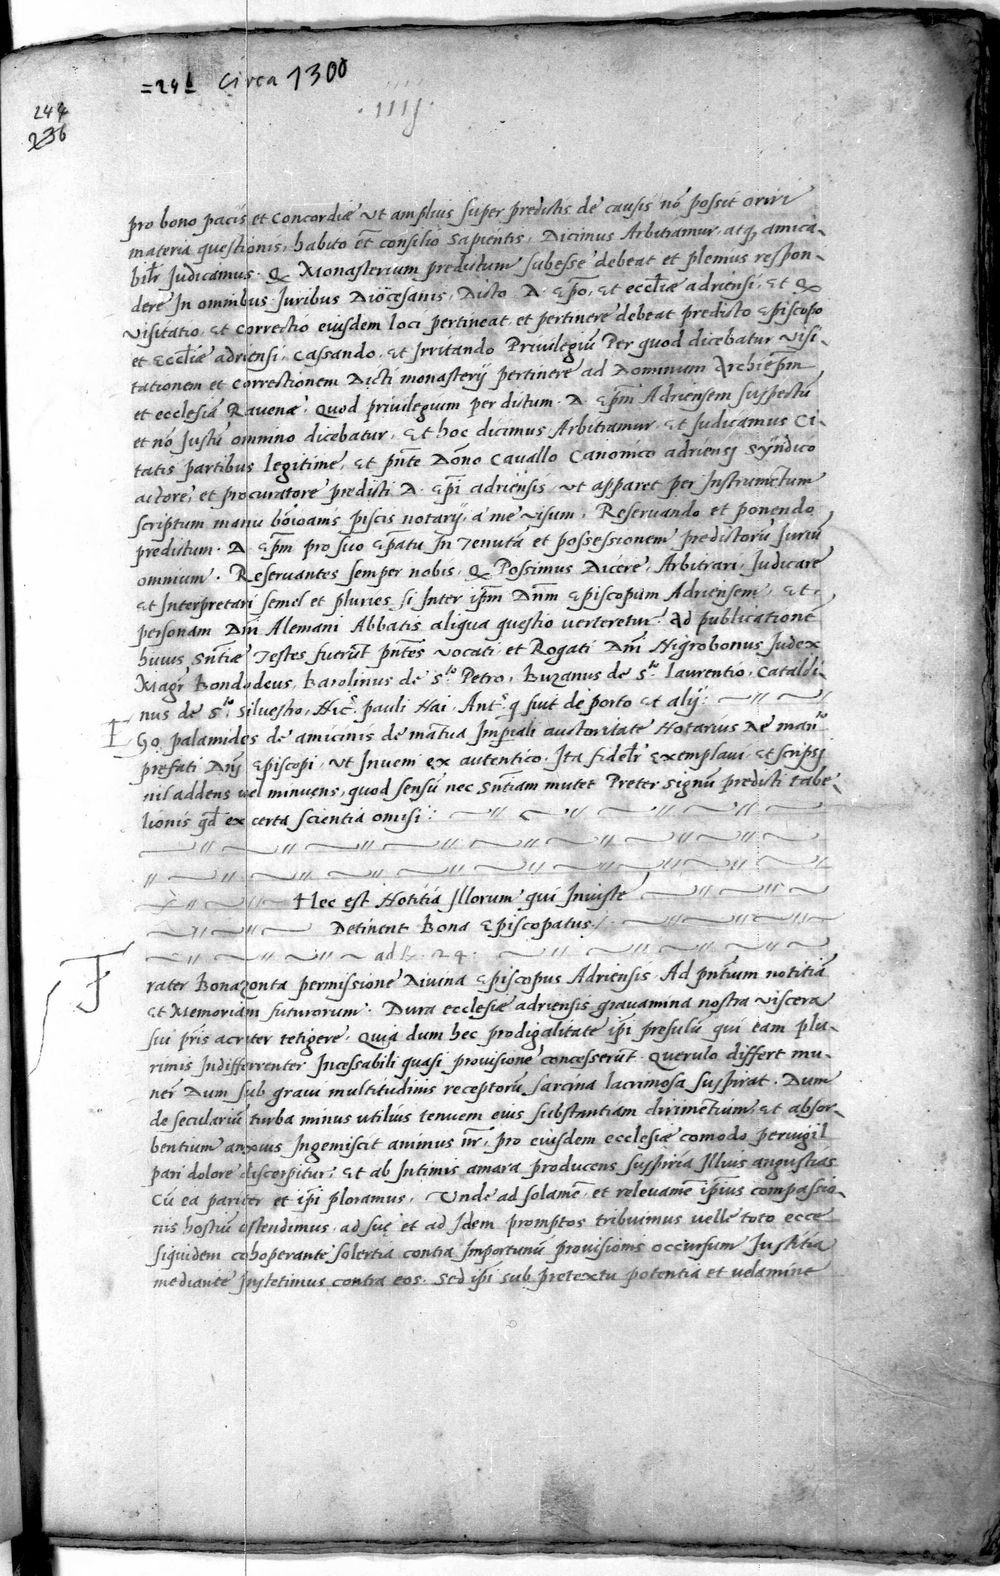 =24 b Circa 1300
244
236
.IIIJ.
pro bono pacis et Concordiæ vt amplius super predictis de causis nõ possit oriri
materia questionis, habito et consilio Sapientis, Dicimus Arbitramur, atq, amica-
bilr̃ Judicamus. Q Monasterium predictum subesse debeat et plenius respon-
dere In omnibus Juribus Diocesanis, Dicto D. Ep̃o, et eccl̃iæ adriensi, Et Q
Visitatio, et correctio eiusdem loci pertineat, et pertinere debeat predicto Episcopo
et Eccl̃iæ adriensi, Cassando, et Irritando Privilegiũ Per quod dicebatur Visi-
tationem et Correctionem Dicti monasterij pertinere ad Dominum Archiep̃m
et ecclesiã Ravenæ, Quod privilegium per dictum. D. Ep̃m Adriensem suspectũ
et nõ Justũ omnino dicebatur, Et hoc dicimus Arbitramur, et Judicamus Ci-
tatis partibus legitime, et pñte Dõno Cavallo Canonico adriensj Syndico
actore, et procuratore predicti D. Ep̃i adriensis, vt apparet per Instrumẽtum
scriptum manu boioanis piscis notarij, a me visum, Reservando et ponendo
predictum. D. Ep̃m pro suo Ep̃atu In Tenutã et possessionem predictorũ Juriũ
omnium. Reservantes semper nobis, Q Possimus Dicere, Arbitrari, Judicare
Et Interpretari semel et pluries si Inter ip̃m Dñm Episcopum Adriensem, Et
personam Dñi Alemani Abbatis aliqua questio verteretur. Ad publicationẽ
huius Sñtiæ Testes fuerũt pñtes vocati et Rogati Dñs Nigrobonus Judex
Magr̃ Bondodeus, Barolinus de S.to Petro, Buzanus de S.to laurentio, Cataldi-
nus de S.to Silvestro, Nic.s pauli Nai, Ant.s q fuit de porto Et alij
EGo palamides de amicinis de mãtua Imperiali auctoritate Notarius De man.to
prefati Dñj Episcopi, vt Inveni ex autentico, Ita fidelr̃ Exemplavi, et scripsj
nil addens vel minuens, quod sensũ nec Sñtiam mutet Preter signũ predicti tabe-
lionis qd̃ ex certa scientia omisi:
Hec est Notitia Illorum qui Iniuste
Detinent Bona Episcopatus
ad
Frater Bonazonta permissione Divina Episcopus Adriensis. Ad pñtium notitiã
et Memoriam futurorum. Dura ecclesiæ adriensis gravamina nostra viscera
sui p̃ris acriter tetigere, Quia dum hec prodigalitate ip̃i presulũ qui eam plu-
rimis Indifferrenter Incessabili quasi provisione concesserũt. Querulo differt mu-
ner Dum sub gravi multitudinis receptorũ sarcina lacrimosa suspirat. Dum
de seculariũ turba minus utilius tenuem eius substantiam dirimẽtium, Et absor-
bentium anxius Ingemiscit animus ñr, pro eiusdem ecclesiæ comodo pervigil
pari dolore discerpitur, Et ab Intimis amara producens suspiria Illius angustias
Cũ ea pariter et ip̃i ploramus, Unde ad solamẽ, et relevamẽ ip̃ius compassio-
nis hostiũ ostendimus, ad suę et ad Idem promptos tribuimus velle toto ecce
siquidem cohoperante solertia contra Importunũ provisionis occursum Justitia
mediante Insletimus contra eos. Sed ip̃i sub pretextu potentia et velamine